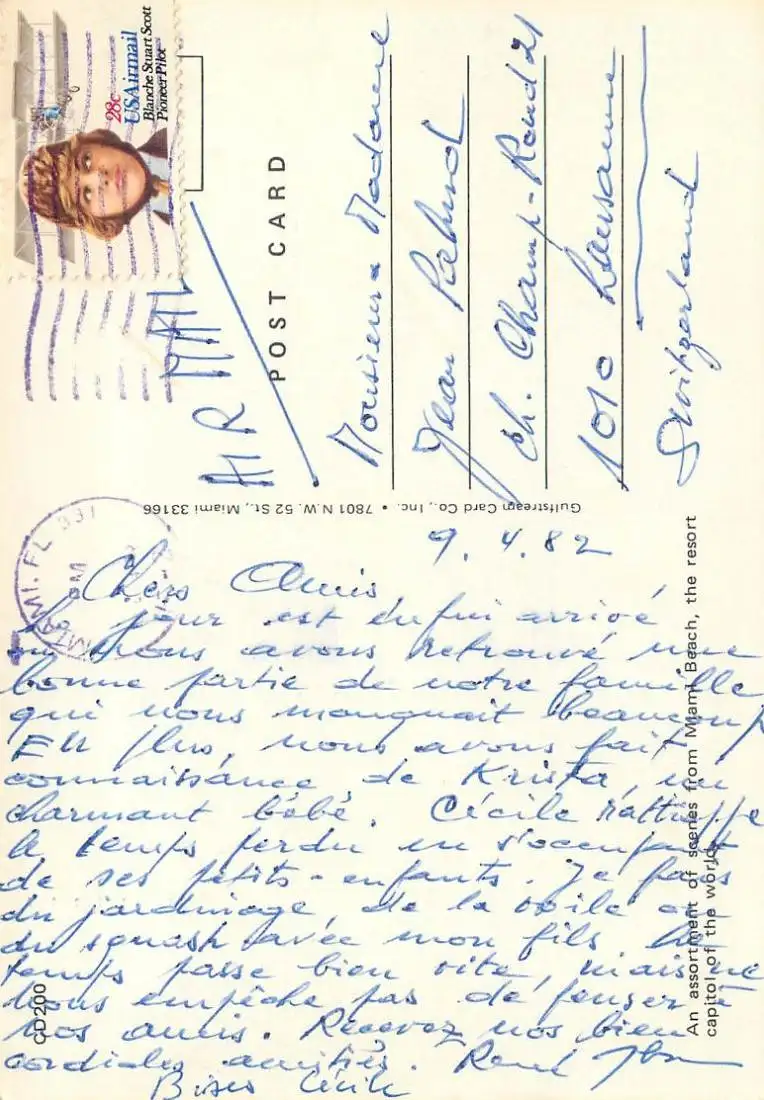 28c
USAirmail
Blanche Stuart Scott
Pioneer Pilot
AIR MAIL
POST CARD
Monsieur & Madame
Jean
ch. Champ-Rond 21
1010 Lausanne
Switzerland
Gulfstream Card Co., Inc. • 7801 N.W. 52 St., Miami 33166
MIAMI, FL 331
PM
An assortment of scenes from Miami Beach, the resort
capitol of the world.
CD200
9.4.82
Chers Amis,
Le jour est enfin arrivé
où nous avons retrouvé une
bonne partie de notre famille
qui nous manquait beaucoup
En plus, nous avons fait
connaissance, de Krista, un
charmant bébé. Cécile rattrappe
le temps perdu en s'occupant
de ses petits-enfants. Je fais
du jardinage, de la voile ou
du squash avec mon fils. Le
temps passe bien vite, mais ne
nous empêche pas de penser à
nos amis. Recevez nos bien
cordiales amitiés. René
Bises Cécile